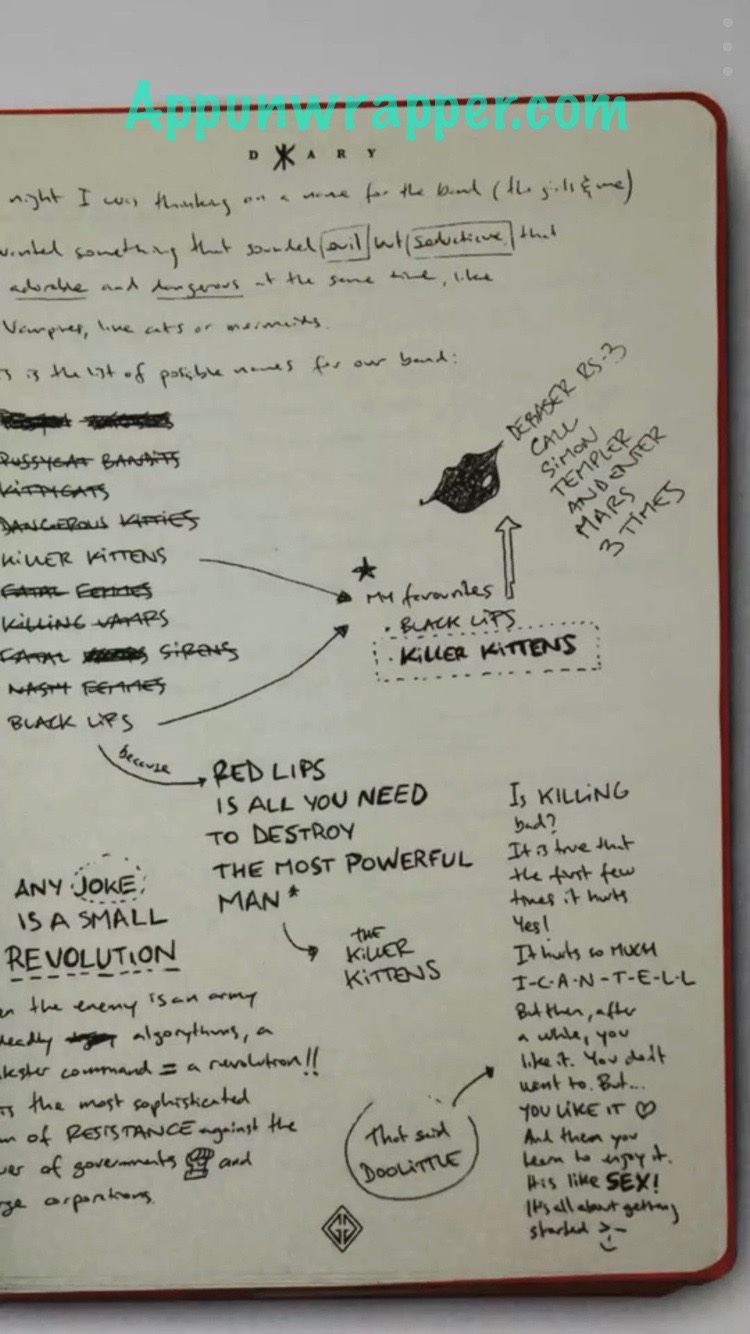 Appunwrapper.com
D A R Y
night I was thinking on a name for the band (the girls & me)
wanted something that sounded evil but seductive, that
adorable and dangerous at the same time, like
Vampires, like cats or mermaids.
s is the list of possible names for our band:
PUSSYCAT BANDITS
KITTYCATS
DANGEROUS KITTIES
KILLER KITTENS
FATAL FEMMES
KILLING VAMPS
FATAL SIRENS
NASTY FEMMES
BLACK LIPS
DEBASER RS-3
CALL
SIMON
TEMPLER
AND ENTER
MARS
3 TIMES
MY favourites
. BLACK LIPS
. KILLER KITTENS
because
RED LIPS
IS ALL YOU NEED
TO DESTROY
THE MOST POWERFUL
MAN*
THE
KILLER
KITTENS
ANY JOKE
IS A SMALL
REVOLUTION
n the enemy is an army
deadly algorythms, a
kster command = a revolution!!
is the most sophisticated
m of RESISTANCE against the
wer of governments and
rge corporations.
That said
DOOLITTLE
Is KILLING
bad?
It is true that
the first few
times it hurts.
Yes!
It hurts so MUCH
I-C-A-N-T-E-L-L
But then, after
a while, you
like it. You don't
want to. But...
YOU LIKE IT ♡
And then you
learn to enjoy it.
It is like SEX!
It's all about getting
started